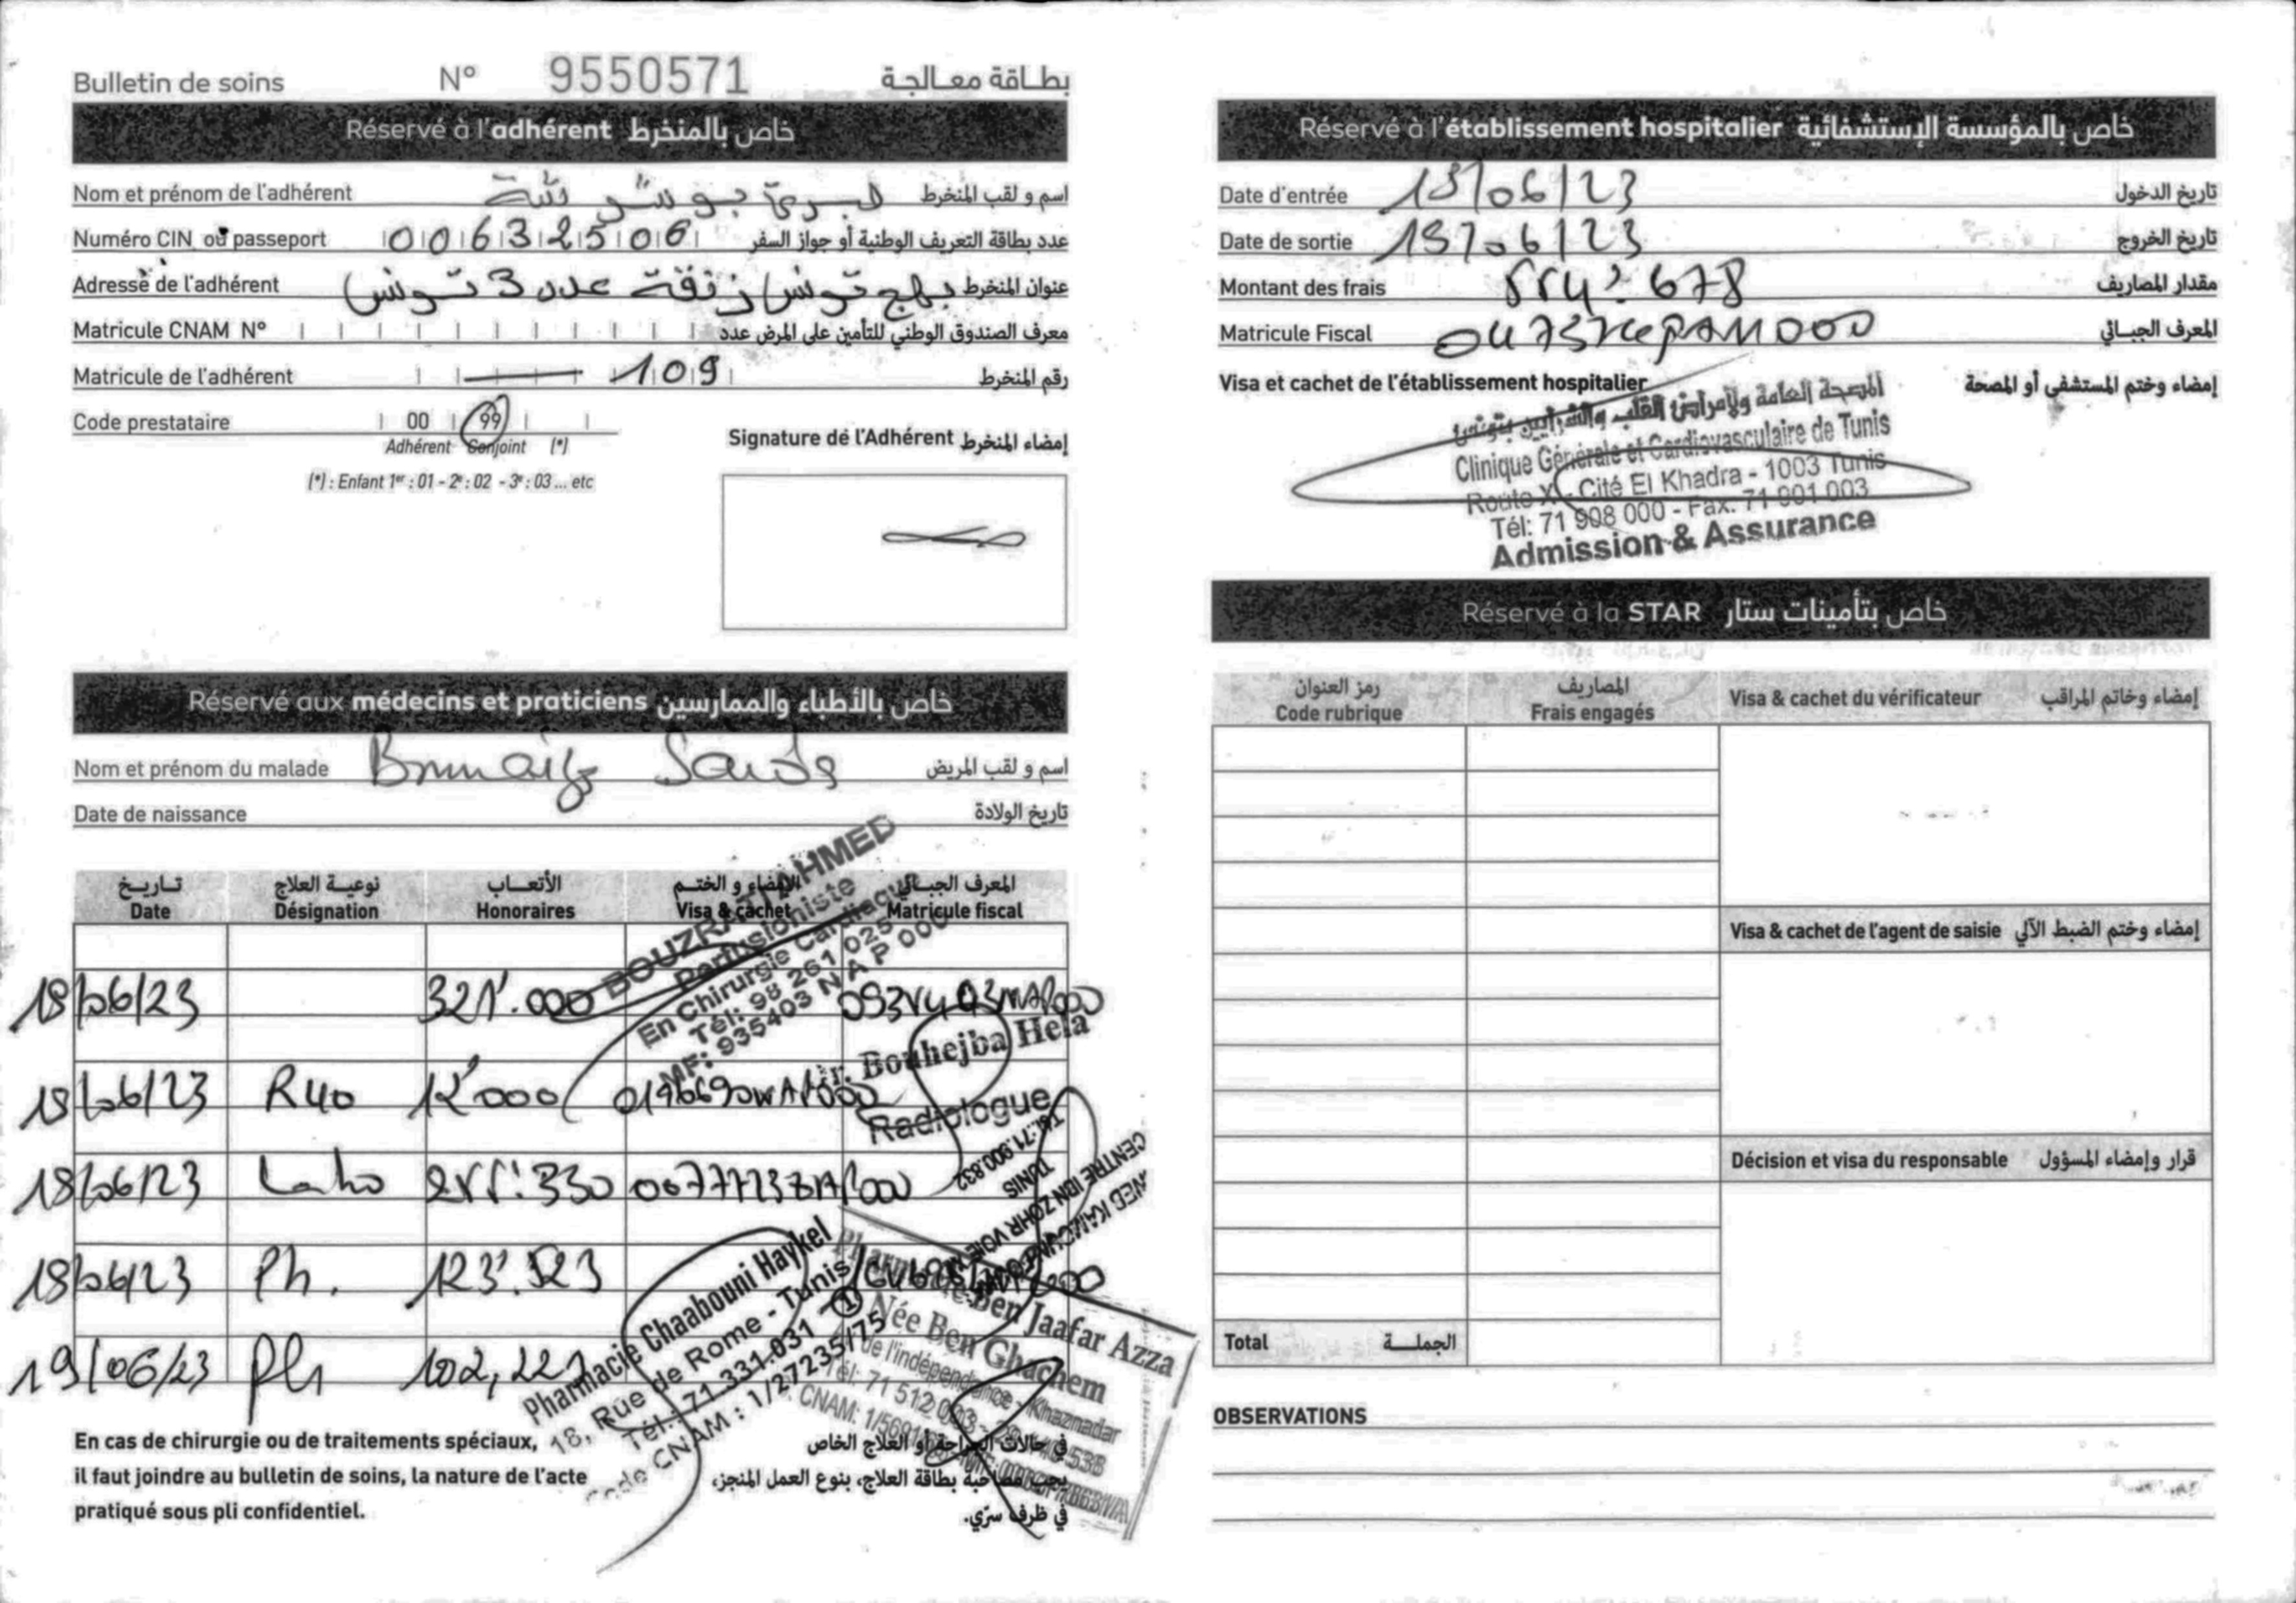 Bulletin de soins N° 9550571 بطاقة معالجة
Réservé à l'adhérent خاص بالمنخرط
Nom et prénom de l'adhérent اسم و لقب المنخرط
Numéro CIN ou passeport 00632506 عدد بطاقة التعريف الوطنية أو جواز السفر
Adresse de l'adhérent نهج تونس زنقة عدد 3 تونس عنوان المنخرط
Matricule CNAM N° معرف الصندوق الوطني للتأمين على المرض عدد
Matricule de l'adhérent 109 رقم المنخرط
Code prestataire 00 99
Adhérent Conjoint (*)
(*) : Enfant 1er : 01 - 2e : 02 - 3e : 03 ... etc
Signature de l'Adhérent إمضاء المنخرط
Réservé aux médecins et praticiens خاص بالأطباء والممارسين
Nom et prénom du malade اسم و لقب المريض
Date de naissance تاريخ الولادة
تاريخ نوعية العلاج الأتعاب الإمضاء و الختم المعرف الجبائي
Date Désignation Honoraires Visa & cachet Matricule fiscal
BOUZRATI AHMED
Perfusioniste
En Chirurgie Cardiaque
Tél: 98 261 025
MF: 935403 N A P 000
18/06/23 321'.000
Dr. Bouhejba Hela
Radiologue
18/06/23 R40 12'000
Tél.:71.900.832
TUNIS
CENTRE IBN ZOHR
18/06/23 Labo 255'.330
18/06/23 Ph. 123'.523
19/06/23 Ph 102,221
Pharmacie Chaabouni Haykel
18, Rue de Rome - Tunis
Tél.: 71.331.031
Code CNAM : 1/27235/75
Pharmacie Ben Jaafar Azza
Née Ben Ghachem
de l'indépendance - Khaznadar
En cas de chirurgie ou de traitements spéciaux,
il faut joindre au bulletin de soins, la nature de l'acte
pratiqué sous pli confidentiel.
في حالات الجراحة أو العلاج الخاص
يجب مصاحبة بطاقة العلاج، بنوع العمل المنجز،
في ظرف سرّي.
Réservé à l'établissement hospitalier خاص بالمؤسسة الإستشفائية
Date d'entrée 19/06/23 تاريخ الدخول
Date de sortie 19/06/23 تاريخ الخروج
Montant des frais 554'.678 مقدار المصاريف
Matricule Fiscal المعرف الجبائي
Visa et cachet de l'établissement hospitalier إمضاء وختم المستشفى أو المصحة
المصحة العامة ولأمراض القلب والشرايين بتونس
Clinique Générale et Cardiovasculaire de Tunis
Route X - Cité El Khadra - 1003 Tunis
Tél: 71 908 000 - Fax: 71 901 003
Admission & Assurance
Réservé à la STAR خاص بتأمينات ستار
رمز العنوان المصاريف
Code rubrique Frais engagés
Visa & cachet du vérificateur إمضاء وخاتم المراقب
Visa & cachet de l'agent de saisie إمضاء وختم الضبط الآلي
Décision et visa du responsable قرار وإمضاء المسؤول
Total الجملة
OBSERVATIONS